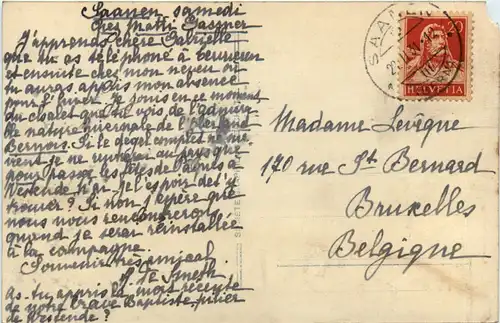 Saanen, samedi
chez Mätti Gassner
J'apprends chère Gabrielle
que tu as téléphoné à
et ensuite chez mon neveu où
tu auras appris mon absence
pour l'hiver. Je jouis en ce moment
du chalet que tu vois de l'admira
ble nature hivernale de l'Oberland
Bernois. Si le dégel complet ne
vient je ne au pays que
pour passer les fêtes de Pâques à
Westende. N'ai-je l'espoir de t'y
trouver? Si non j'espère que
nous nous rencontrerons
quand je serai réinstallée
à la campagne.
Souvenir très amical
As-tu appris la mort récente
de notre brave Baptiste,
de Westende?
HELVETIA
SAANEN
Madame Levêque
170 rue St. Bernard
Bruxelles
Belgique